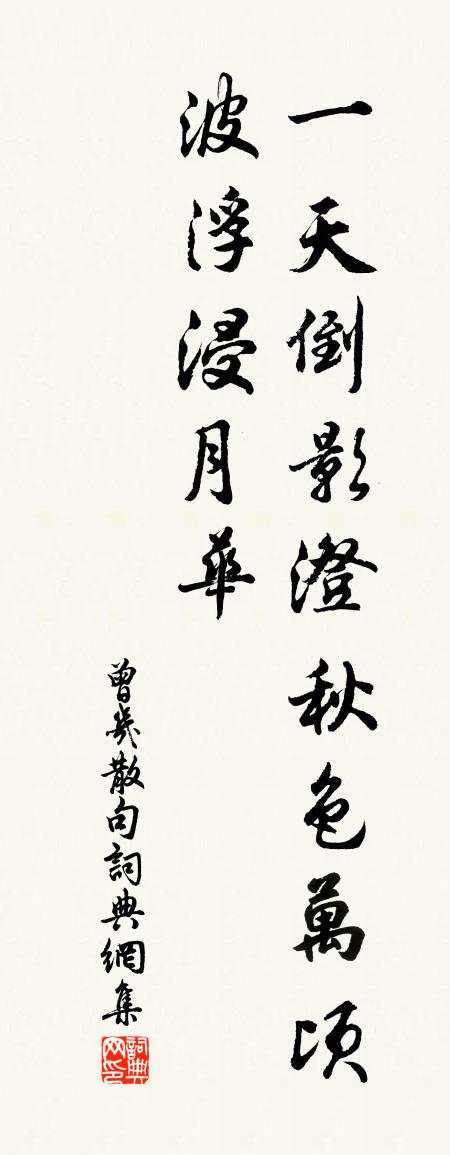 一天倒影澄秋色萬頃
波浮浸月華
曾幾散句詞典網集
詞典网印